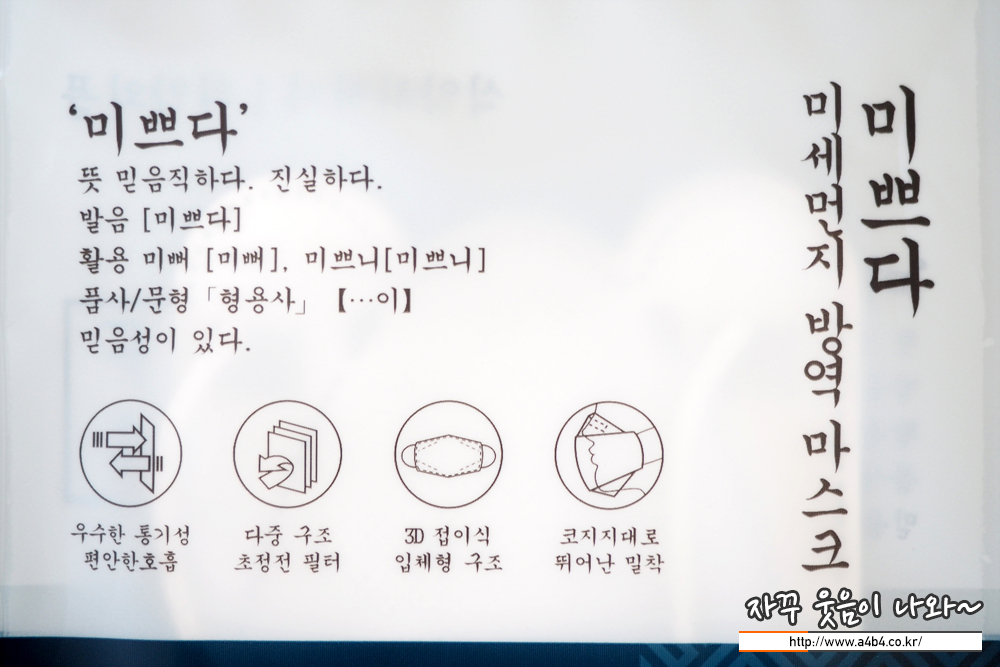 ‘미쁘다’
뜻 믿음직하다. 진실하다.
발음 [미쁘다]
활용 미뻐 [미뻐], 미쁘니[미쁘니]
품사/문형「형용사」【…이】
믿음성이 있다.
우수한 통기성
편안한호흡
다중 구조
초정전 필터
3D 접이식
입체형 구조
코지지대로
뛰어난 밀착
미쁘다
미세먼지 방역 마스크
자꾸 웃음이 나와~
http://www.a4b4.co.kr/